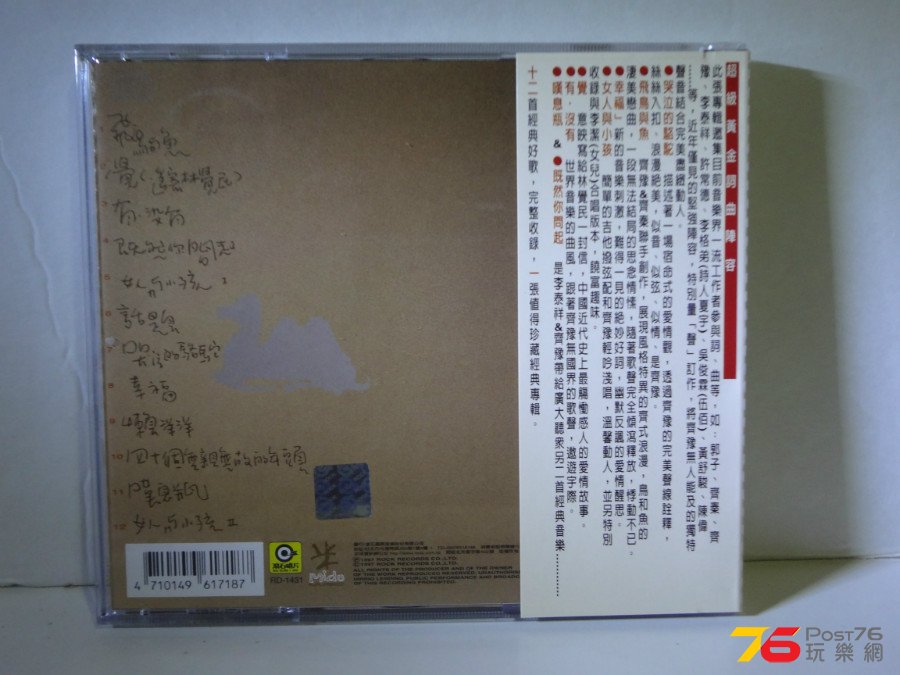 飛鳥與魚
覺(遙寄林覺民)
2
有沒有
既然你問起
5
女人與小孩 I
7
哭泣的駱駝
8
幸福
9
懶洋洋
10
四十個無親無故的年頭
11
嘆息瓶
12
女人與小孩 II
4 710149 617187
滾石唱片
RD-1431
Mido
1997 ROCK RECORDS CO.,LTD.
1997 ROCK RECORDS CO.,LTD.
ALL RIGHTS OF THE PRODUCER AND OF THE OWNER
OF THE WORK REPRODUCED RESERVED. UNAUTHORISED
LENDING PUBLIC PERFORMANCE AND BROADCAS
OF THIS RECORDING PROHIBITED.
超級黃金詞曲陣容
此張專輯邀集目前音樂界一流工作者參與詞、曲等，如：郭子、齊秦、齊
豫、李泰祥、許常德、李格弟(詩人夏宇)、吳俊霖(伍佰)、黃舒駿、陳偉
……等，近年僅見的堅強陣容，特別量「聲」訂作，將齊豫無人能及的獨特
聲音結合完美盡緻動人。
●哭泣的駱駝 描述著一場宿命式的愛情觀，透過齊豫的完美聲線詮釋，
絲絲入扣、浪漫絕美，似音、似弦、似情、是齊豫。
●飛鳥與魚 齊豫&齊秦聯手創作，展現風格特異的齊式浪漫，鳥和魚的
淒美戀曲，一段無法結局的思念情愫，隨著歌聲完全傾瀉釋放，悸動不已。
●幸福 新的音樂刺激，難得一見的絕妙好詞，幽默反諷的愛情醒思。
●女人與小孩 簡單的吉他撥弦配和齊豫輕吟淺唱，溫馨動人，並另特別
收錄與李潔(女兒)合唱版本，饒富趣味。
●覺 意映寫給林覺民一封信，中國近代史上最騙慟感人的愛情故事。
●有，沒有 世界音樂的曲風，跟著齊豫無國界的歌聲，遨遊宇際。
●嘆息瓶 & ●既然你問起 是李泰祥&齊豫帶給廣大聽衆另二首經典音樂……
十二首經典好歌，完整收錄，一張值得珍藏經典專輯。
76 Post76
玩樂網